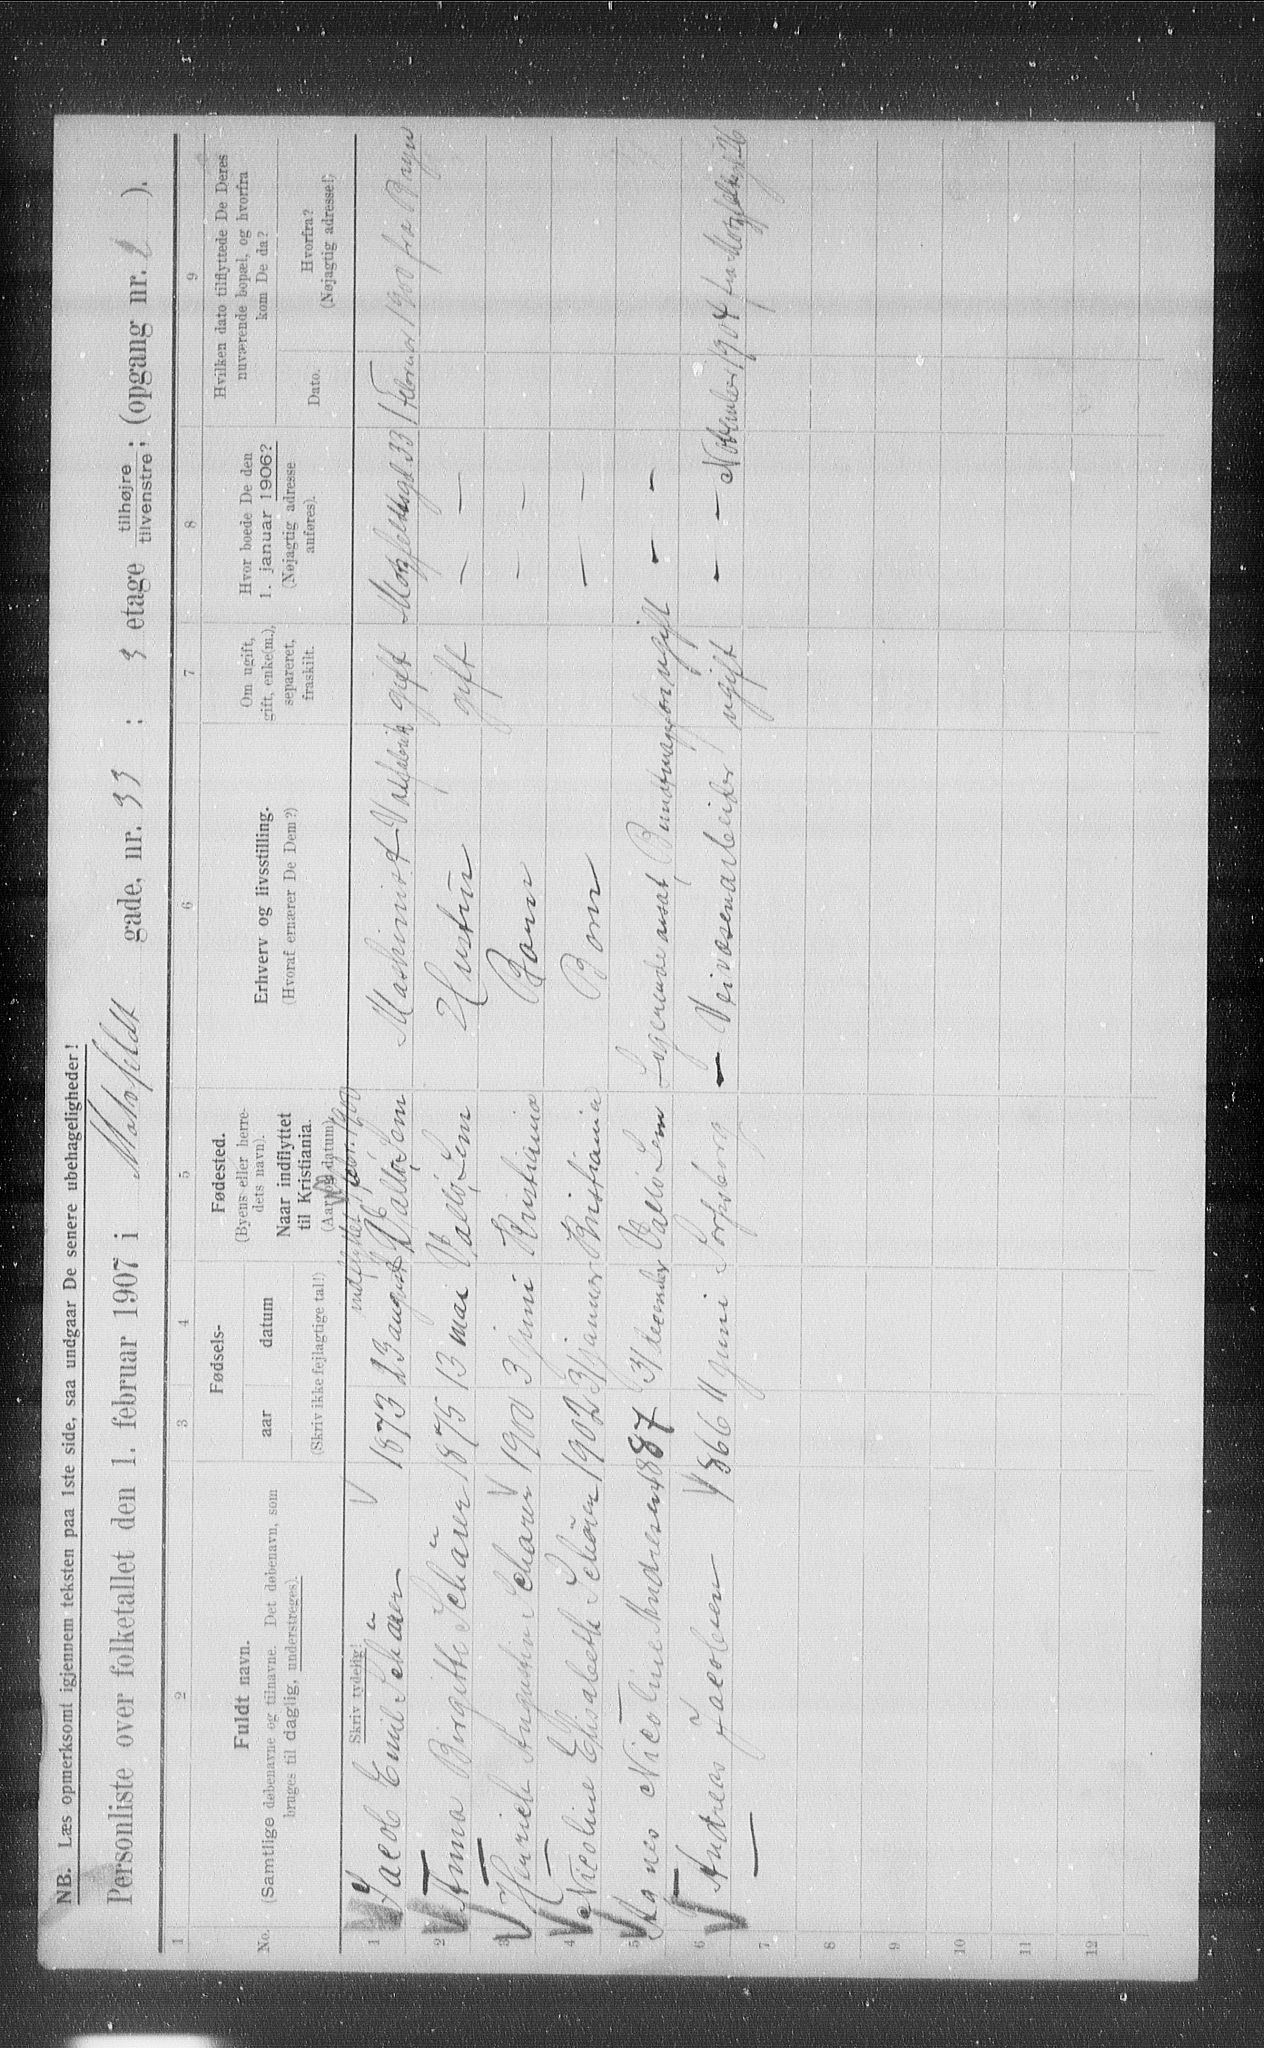 NB. Læs opmerksomt igjennem teksten paa 1ste side, saa undgaar De senere ubehageligheder!
Personliste over folketallet den 1. februar 1907 i Motzfeldt gade, nr. 33 ; 3 etage tilhøjre / tilvenstre ; (opgang nr. 2 ).
1 2 3 4 5 6 7 8 9
No.
Fuldt navn.
(Samtlige døbenavne og tilnavne. Det døbenavn, som
bruges til daglig, understreges).
Skriv tydelig!
Fødsels-
aar datum
(Skriv ikke fejlagtige tal!)
Fødested.
(Byens eller herre-
dets navn).
Naar indflyttet
til Kristiania.
(Aar og datum).
Erhverv og livsstilling.
(Hvoraf ernærer De Dem?)
Om ugift,
gift, enke(m.),
separeret,
fraskilt.
Hvor boede De den
1. januar 1906?
(Nøjagtig adresse
anføres).
Hvilken dato tilflyttede De Deres
nuværende bopæl, og hvorfra
kom De da?
Dato.
Hvorfra?
(Nøjagtig adresse!)
indflyttet 1 febr. 1900
1 Jacob Emil Schärer 1873 23 august Vallö Sem Maskinist gift Motzfeldtsgt 33 1 Februar 1900 fra Bryn
2 Anna Birgitte Schärer 1875 13 mai Vallö Sem Hustru gift — —
3 Henrich Augustin Schärer 1900 3 juni Kristiania Barn — —
4 Nicoline Elisabeth Schärer 1902 31 januar Kristiania Barn — —
5 Agnes Nicoline Andresen 1887 31 december Vallö Sem Logerende ansat Buntmager ugift — —
6 Andreas Jacobsen 1866 11 juni Sarpsborg — Veivæsenarbeider ugift — — November 1904 fra
7
8
9
10
11
12